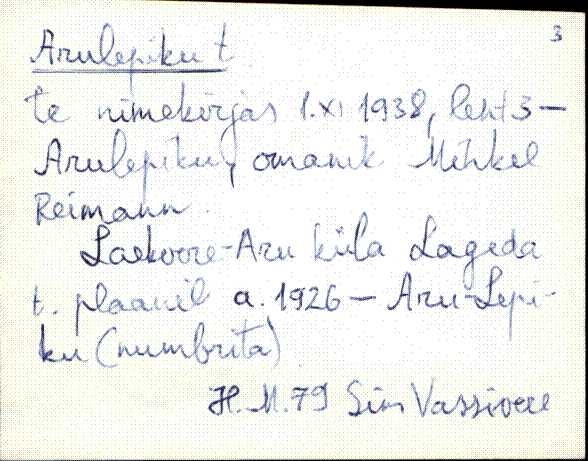 3
Arulepiku t.
te nimekirjas 1.XI 1938, leht 3 –
Arulepiku, omanik Mihkel
Reimann.
Laekvere-Aru küla Lageda
t. plaanil a. 1926 – Aru-Lepi-
ku (numbrita)
H. M. 79 Vassivere